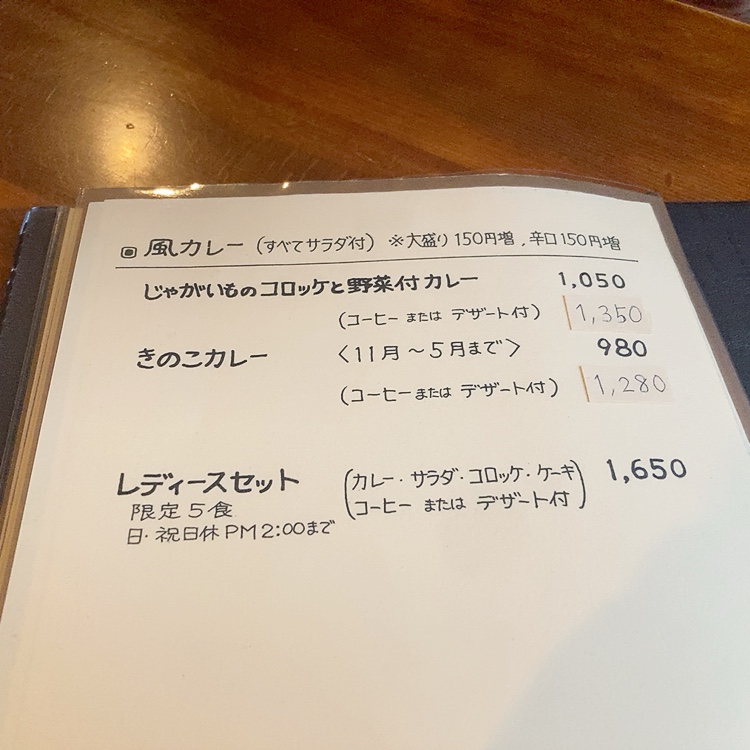 回 風カレー (すべてサラダ付) ※大盛り150円増，辛口150円増
じゃがいものコロッケと野菜付カレー 1,050
(コーヒー または デザート付) 1,350
きのこカレー 〈11月～5月まで〉 980
(コーヒーまたは デザート付) 1,280
レディースセット (カレー・サラダ・コロッケ・ケーキ 1,650
限定5食 コーヒー または デザート付)
日・祝日休PM2:00まで